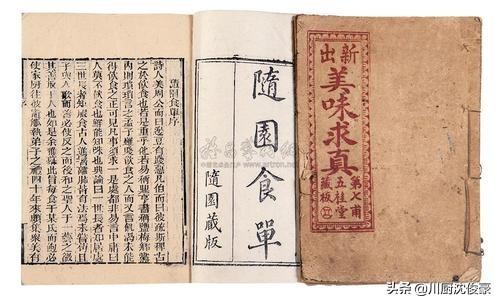 隨園食單序
詩人美周公而曰籩豆有踐惡凡伯而曰彼疏斯稗古
之於飲食也若是重乎他若易稱鼎亨書稱鹽梅鄉黨
內則瑣瑣言之孟子雖賤飲食之人而又言飢渴未能
得飲食之正可見凡事須求一是處都非易言中庸曰
人莫不飲食也鮮能知味也典論曰一世長者知居處
三世長者知服食古人進鬐離肺皆有法焉未嘗苟且
子與人歌而善必使反之而後和之聖人于一藝之微
其善取於人也如是余雅慕此旨每食于某氏而飽必
使家廚往彼灶觚執弟子之禮四十年來頗集眾美有
隨園食單
隨園藏版
新出
美味求真
第七甫
五桂堂
藏板
头条 @川厨沈俊豪